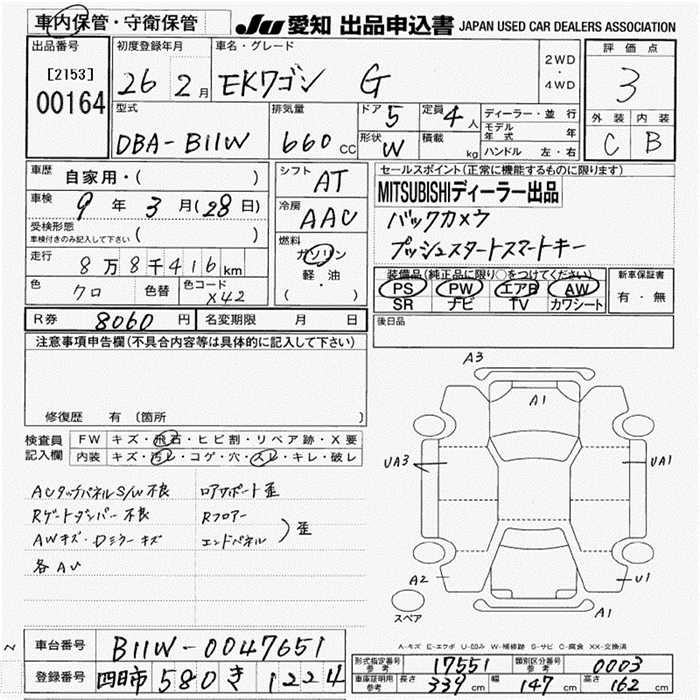 車内保管・守衛保管
JU 愛知 出品申込書 JAPAN USED CAR DEALERS ASSOCIATION
出品番号 [2153] 00164
初度登録年月 26 2月
車名・グレード EKワゴン G
2WD・4WD
評価点 3
外装 内装
C B
型式 DBA-B11W
排気量 660cc
ドア 5
定員 4人
形状 W
積載 kg
ディーラー・並行
モデル年式 年
ハンドル 左・右
車歴 自家用・( )
車検 9年 3月(28日)
受検形態
車検付きのみ記入して下さい ( )
走行 8万8千416km
色 クロ 色替
色コード X42
シフト AT
冷房 AAC
燃料 ガソリン
軽・油
( )
セールスポイント(正常に機能するものに限ります)
MITSUBISHIディーラー出品
バックカメラ
プッシュスタートスマートキー
装備品(純正品に限り○をつけてください)
PS PW エアB AW
SR ナビ TV カワシート
新車保証書
有・無
R券 8060円
名変期限 月 日
後日品
注意事項申告欄(不具合内容等は具体的に記入して下さい)
修復歴 有 (箇所 )
検査員記入欄
FW キズ・飛石・ヒビ割・リペア跡・X要
内装 キズ・汚レ・コゲ・穴・スレ・キレ・破レ
ACタッチパネルS/W不良 ロアサポート歪
Rゲートダンパー不良 Rフロアー
AWキズ・Dミラーキズ エンドパネル )歪
各AU
A3
A1
UA3
UA1
A2
U1
A1
スペア
A-キズ E-エクボ U-凹み W-補修跡 S-サビ C-腐食 XX-交換済
車台番号 B11W-0047651
登録番号 四日市 580 き 1224
形式指定番号 参考 17551
類別区分番号 参考 0003
車庫証明用 参考 長さ 339cm 幅 147cm 高さ 162cm